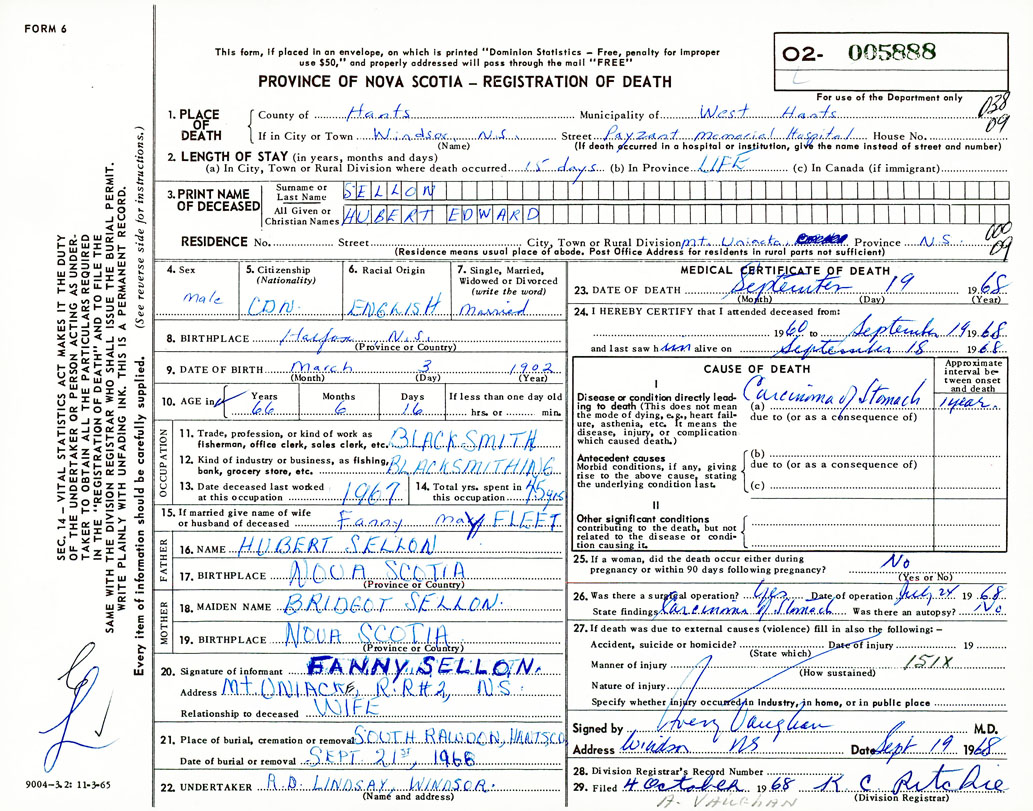 FORM 6
This form, if placed in an envelope, on which is printed "Dominion Statistics – Free, penalty for improper
use $50," and properly addressed will pass through the mail "FREE"
PROVINCE OF NOVA SCOTIA – REGISTRATION OF DEATH
02- 005888
For use of the Department only
038
09
1. PLACE OF DEATH
County of Hants Municipality of West Hants
If in City or Town Windsor, N.S. Street Payzant Memorial Hospital House No.
(Name) (If death occurred in a hospital or institution, give the name instead of street and number)
2. LENGTH OF STAY (in years, months and days)
(a) In City, Town or Rural Division where death occurred 15 days (b) In Province LIFE (c) In Canada (if immigrant)
3. PRINT NAME OF DECEASED
Surname or Last Name SELLON
All Given or Christian Names HUBERT EDWARD
000
09
RESIDENCE No. Street City, Town or Rural Division Mt. Uniacke Province N.S.
(Residence means usual place of abode. Post Office Address for residents in rural parts not sufficient)
4. Sex
male
5. Citizenship
(Nationality)
CDN.
6. Racial Origin
ENGLISH
7. Single, Married,
Widowed or Divorced
(write the word)
Married
8. BIRTHPLACE Halifax, N.S.
(Province or Country)
9. DATE OF BIRTH March 3 1902
(Month) (Day) (Year)
10. AGE in
Years Months Days If less than one day old
66 6 16 hrs. or min.
OCCUPATION
11. Trade, profession, or kind of work as
fisherman, office clerk, sales clerk, etc. BLACKSMITH
12. Kind of industry or business, as fishing,
bank, grocery store, etc. BLACKSMITHING
13. Date deceased last worked
at this occupation 1967
14. Total yrs. spent in
this occupation 45 yrs
15. If married give name of wife
or husband of deceased Fanny May FLEET
FATHER
16. NAME HUBERT SELLON
17. BIRTHPLACE NOVA SCOTIA
(Province or Country)
MOTHER
18. MAIDEN NAME BRIDGOT SELLON.
19. BIRTHPLACE NOVA SCOTIA
(Province or Country)
20. Signature of informant FANNY SELLON.
Address MT UNIACKE, R.R#2, NS.
Relationship to deceased WIFE
21. Place of burial, cremation or removal SOUTH RAWDON, HANTSCO
Date of burial or removal SEPT 21st, 1968
22. UNDERTAKER R.D. LINDSAY, WINDSOR.
(Name and address)
MEDICAL CERTIFICATE OF DEATH
23. DATE OF DEATH September 19 1968
(Month) (Day) (Year)
24. I HEREBY CERTIFY that I attended deceased from:
1960 to September 19 1968
and last saw him alive on September 18 1968
CAUSE OF DEATH
Approximate
interval be-
tween onset
and death
I
Disease or condition directly lead-
ing to death (This does not mean
the mode of dying, e.g., heart fail-
ure, asthenia, etc. It means the
disease, injury, or complication
which caused death.)
(a) Carcinoma of Stomach 1 year.
due to (or as a consequence of)
Antecedent causes
Morbid conditions, if any, giving
rise to the above cause, stating
the underlying condition last.
(b)
due to (or as a consequence of)
(c)
II
Other significant conditions
contributing to the death, but not
related to the disease or condi-
tion causing it.
25. If a woman, did the death occur either during
pregnancy or within 90 days following pregnancy? No
(Yes or No)
26. Was there a surgical operation? Yes Date of operation July 24 1968
State findings Carcinoma of Stomach Was there an autopsy? No
27. If death was due to external causes (violence) fill in also the following: –
Accident, suicide or homicide? Date of injury 19
(State which)
Manner of injury 151X
(How sustained)
Nature of injury
Specify whether injury occurred in industry, in home, or in public place
Signed by Avery Vaughan M.D.
Address Windsor NS Date Sept 19 1968
28. Division Registrar's Record Number
29. Filed 4 October 1968 K C Ritchie
(Division Registrar)
A. VAUGHAN
SEC. 14 – VITAL STATISTICS ACT MAKES IT THE DUTY
OF THE UNDERTAKER OR PERSON ACTING AS UNDER-
TAKER TO OBTAIN ALL THE PARTICULARS REQUIRED
IN THE "REGISTRATION OF DEATH" AND TO FILE THE
SAME WITH THE DIVISION REGISTRAR WHO SHALL ISSUE THE BURIAL PERMIT.
WRITE PLAINLY WITH UNFADING INK. THIS IS A PERMANENT RECORD.
Every item of information should be carefully supplied. (See reverse side for instructions.)
9004-3.2: 11-3-65